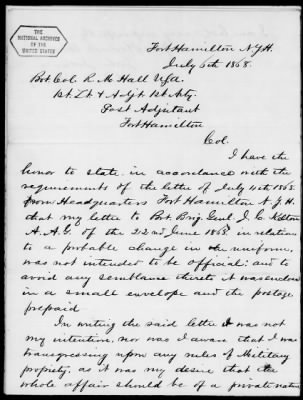 THE
NATIONAL ARCHIVES
OF THE
UNITED STATES
Fort Hamilton N.Y.H.
July 6th 1868.
Bvt Col. R. M. Hall U.S.A.
1st Lt & Adjt. 1st Arty.
Post Adjutant
Fort Hamilton
Col.
I have the
honor to state in accordance with the
requirements of the letter of July 4th 1868.
from Headquarters Fort Hamilton N.Y.H.
that my letter to Bvt. Brig. Genl. J. C. Kelton
A.A.G. of the 22nd June 1868 in relation
to a probable change in the uniform,
was not intended to be official; and to
avoid any semblance thereto it was enclosed
in a small envelope and the postage
prepaid
In writing the said letter it was not
my intention, nor was I aware that I was
transgressing upon any rules of Military
propriety, as it was my desire that the
whole affair should be of a private nature